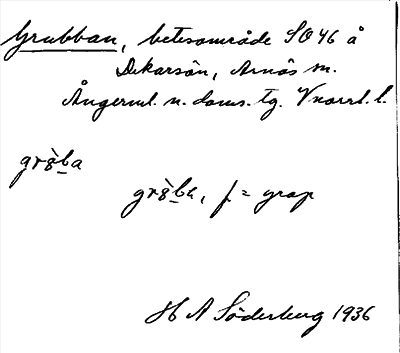 Grubban, betesområde SO 46 å
Dekarsön, Arnäs sn.
Ångerml. n. doms. tg. Vnorrl. l.
gròba
gròba, f = grop
H A Söderberg 1936